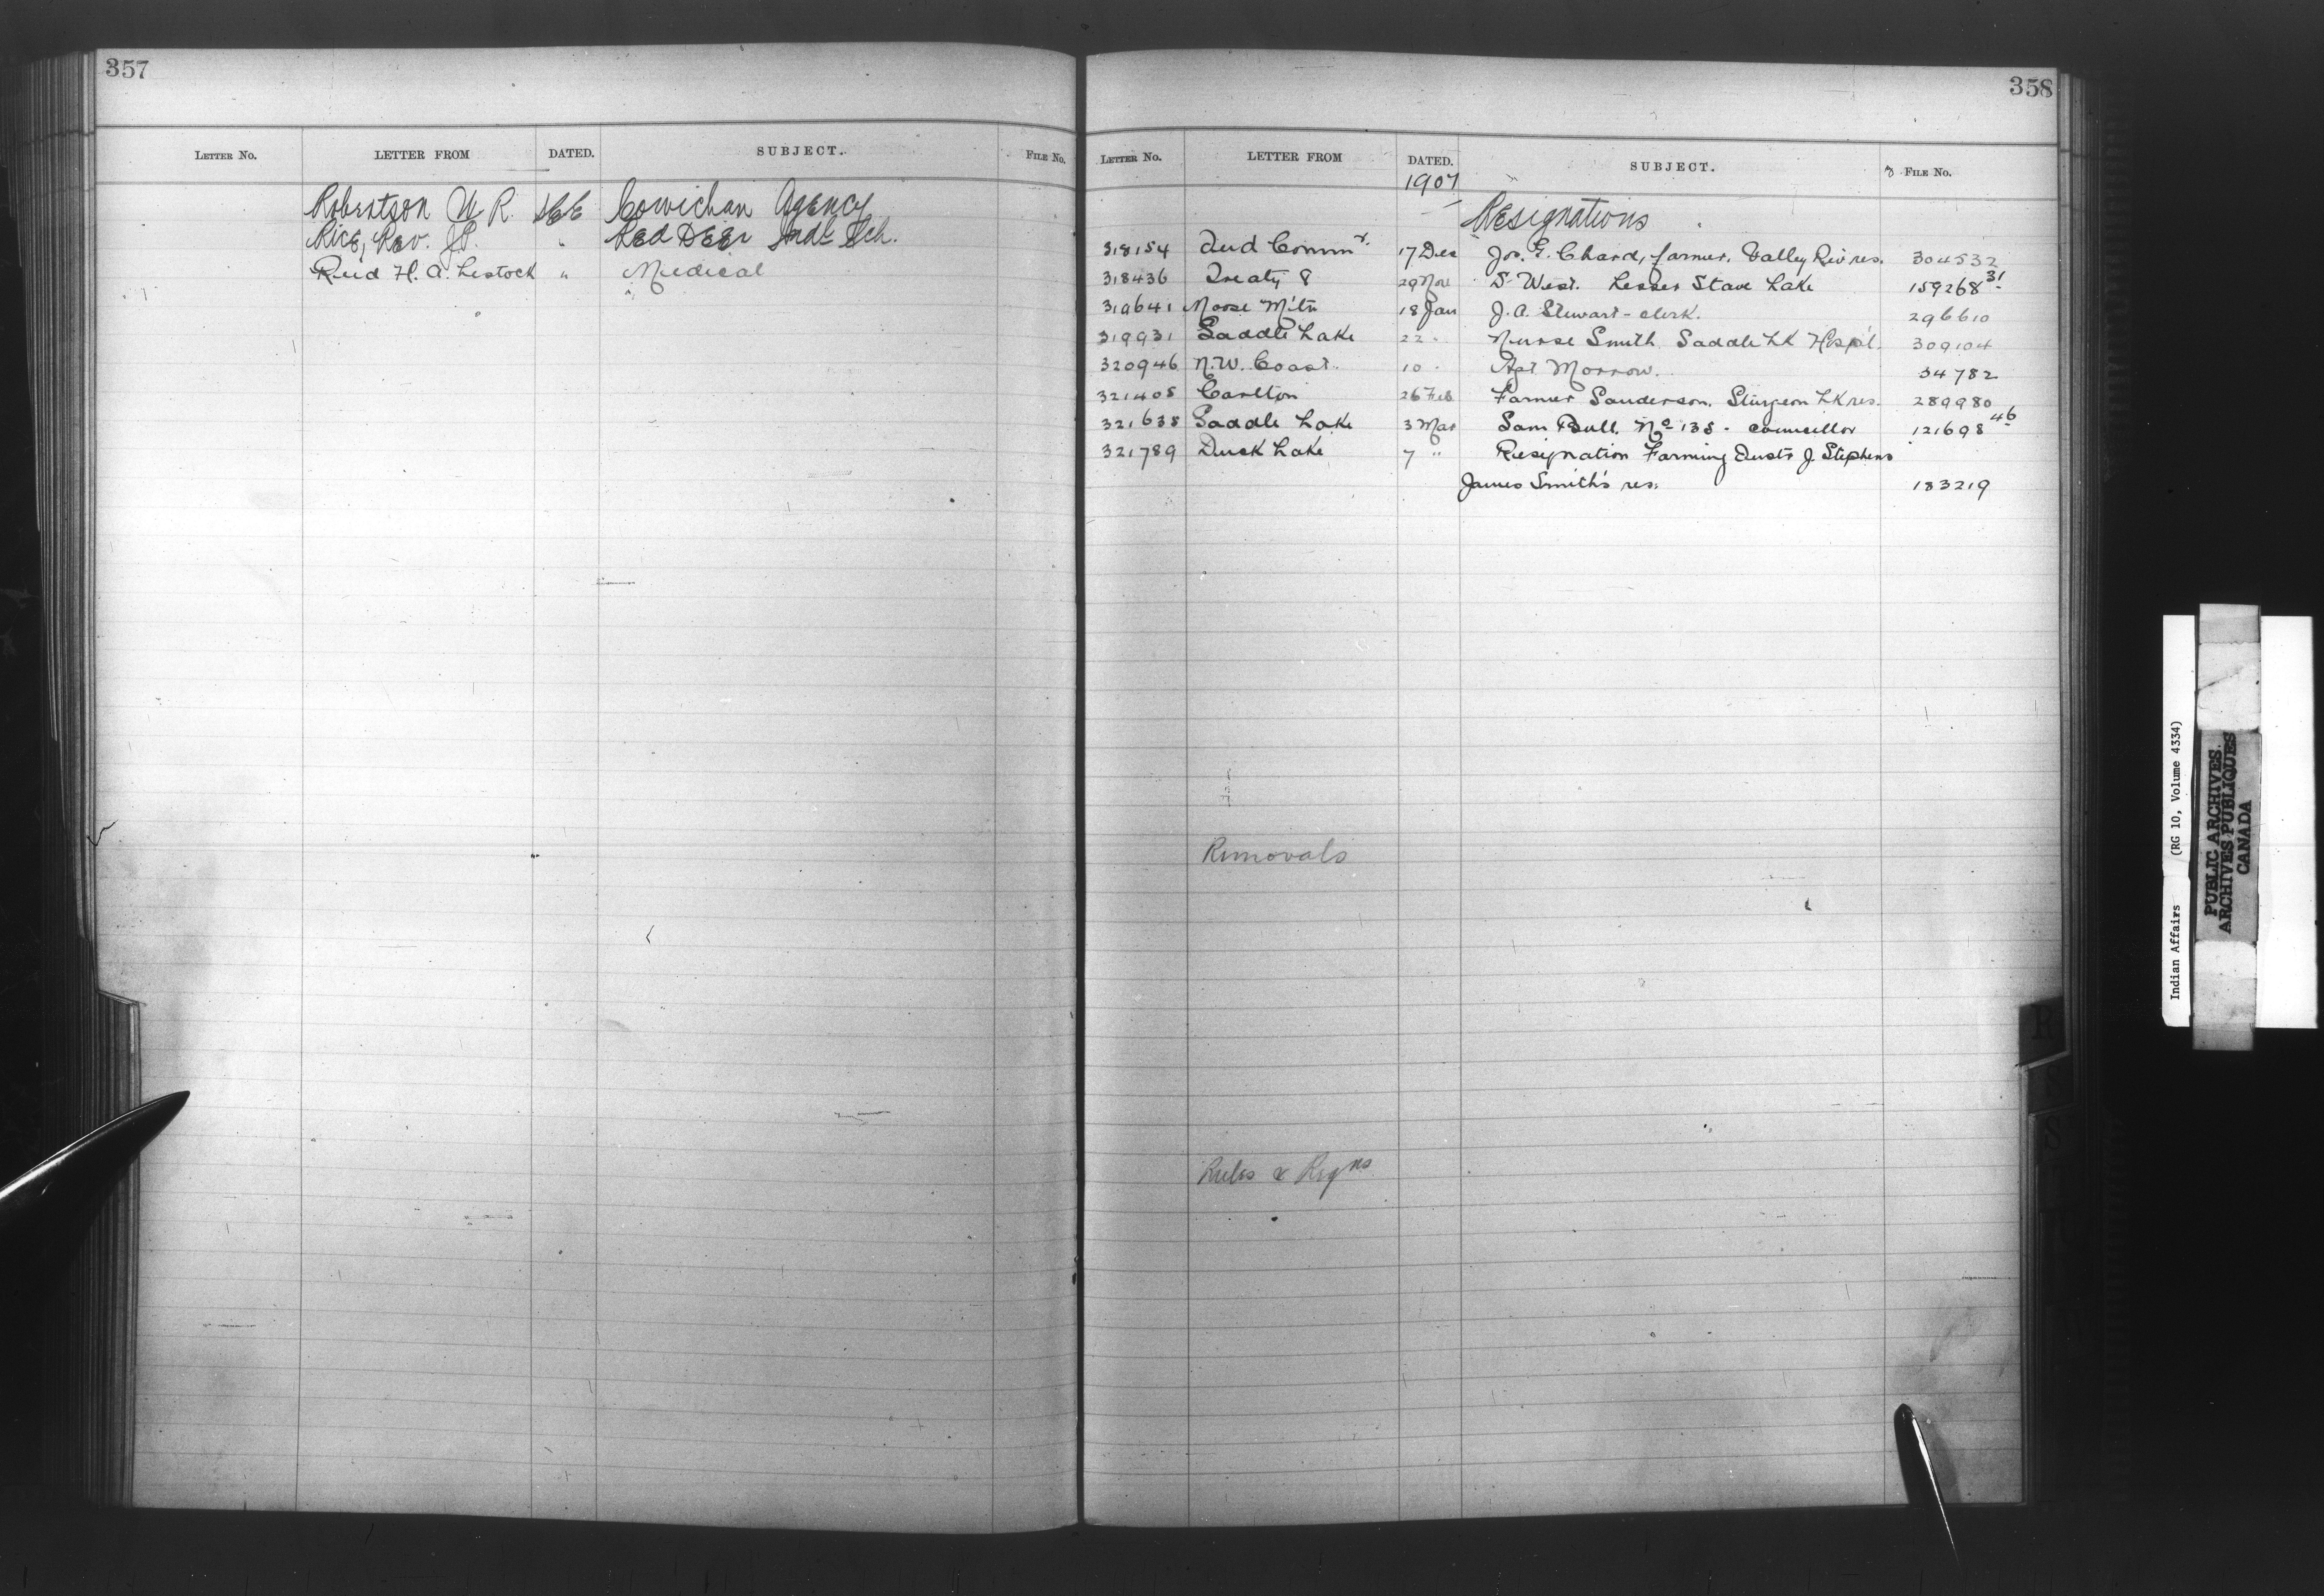 357
LETTER No. LETTER FROM DATED. SUBJECT. FILE No.
Robertson W. R. SEE Cowichan Agency
Rice, Rev. J.P. " Red Deer Ind. Sch.
Reid H. A. Lestock " Medical
358
LETTER No. LETTER FROM DATED. SUBJECT. FILE No.
1907
Resignations
318154 Ind Commr. 17 Dec Jos. E. Chard, farmer. Valley Riv res. 304532
318436 Treaty 8 29 Nov S. West. Lesser Slave Lake 159268 31
319641 Moose Mtn 18 Jan J. A. Stewart - clerk. 296610
319931 Saddle Lake 22 " Nurse Smith Saddle Lk Hospl. 309104
320946 N.W. Coast. 10 " Agt Morrow. 34782
321405 Carlton 26 Feb Farmer Sanderson. Sturgeon Lk res. 289980
321638 Saddle Lake 3 Mar Sam Bull. No 138 - councillor 121698 46
321789 Duck Lake 7 " Resignation Farming Instr J. Stephens
James Smith's res. 183219
Removals
Rules & Regns
R
S
Indian Affairs (RG 10, Volume 4334)
PUBLIC ARCHIVES
ARCHIVES PUBLIQUES
CANADA